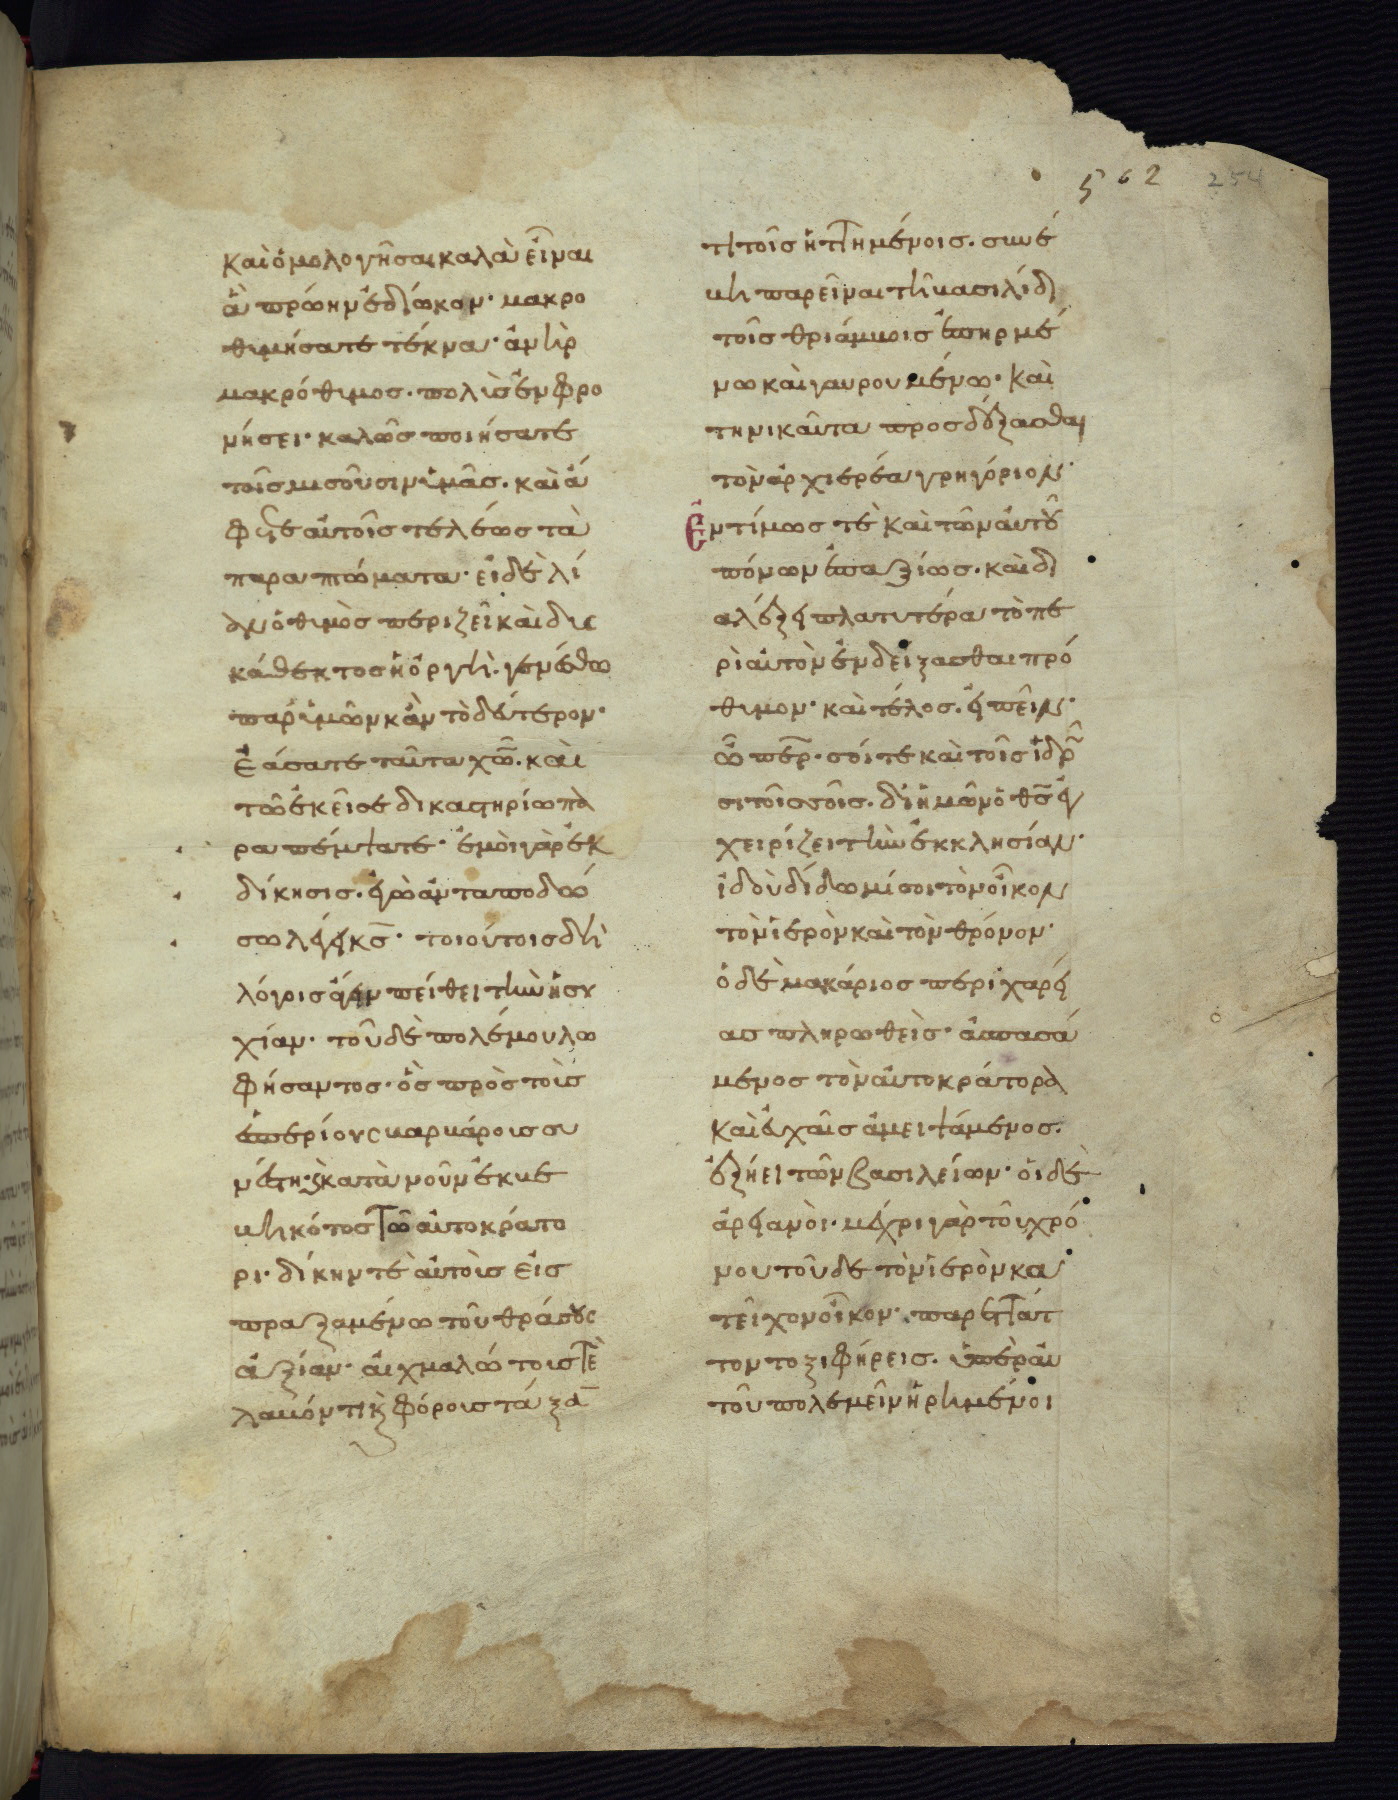 562 254
καὶ ὁμολογῆσαι καλὰ εἶναι
ἃ πρώην ἐδίωκον· μακρο
θυμήσατε τέκνα· ἀνὴρ
μακρόθυμος· πολὺς ἐν φρο
νήσει· καλῶς ποιήσατε
τοῖς μισοῦσιν ὑμᾶς. καὶ ἄ
φετε αὐτοῖς τελέως τὰ
παραπτώματα· εἰ δὲ λί
αν ὁ θυμὸς περιζεῖ καὶ δυς
κάθεκτος ἡ ὀργὴ· γενέσθω
παρ' ὑμῶν κἂν τὸ δεύτερον·
Ἐάσατε ταῦτα χω̅. καὶ
τῶ ἐκεῖσε δικαστηρίω πα
ραπέμψατε· ἐμοὶ γὰρ ἐκ
δίκησις. ἐγὼ ἀνταποδώ
σω λέγει κς̅· τοιούτοις δὴ
λόγοις ἄγειν πείθει τὴν ἡσυ
χίαν· τοῦ δὲ πολέμου λω
φήσαντος· ὃς πρὸς τοὺς
ἑσπερίους βαρβάροις συ
νέστη· καὶ κατὰ νοῦν ἐκβε
βηκότος τῶ αὐτοκράτο
ρι· δίκην τὲ αὐτοὺς εἰς
πραξαμένω τοῦ θράσους
ἀξίαν· αἰχμαλώτοις τὲ
λαβόντι καὶ φόροις τάξαν
τι τοῖς ἡττημένοις. συνέ
βη παρεῖναι τῆ βασιλίδι
τοῖς θριάμβοις ἐπηρμέ
νω καὶ γαυρουμένω· καὶ
τηνικαῦτα προσδέξασθαι
τὸν ἀρχιερέα γρηγόριον·
Ἐντίμως τὲ καὶ τῶν αὐτοῦ
πόνων ἐπαξίως. καὶ δι
αλέξει πλατυτέρα τὸ πε
ρὶ αὐτὸν ἐνδείξασθαι πρό
θυμον· καὶ τέλος. εἰπεῖν·
ὦ περ̅· σοί τε καὶ τοῖς ἱδρῶ
σι τοῖς σοῖς. δι' ἡμῶν ὁ θς̅ ἐγ
χειρίζει τὴν ἐκκλησίαν·
ἰδοὺ δίδωμί σοι τὸν οἶκον
τὸν ἱερὸν καὶ τὸν θρόνον·
ὁ δὲ μακάριος περιχαρεί
ας πληρωθεὶς· ἀσπασά
μενος τὸν αὐτοκράτορα
καὶ εὐχαῖς ἀμειψάμενος.
ἐξήει τῶν βασιλείων· οἱ δὲ
ἀρειανοὶ· μέχρι γὰρ τοῦ χρό
νου τοῦδε τὸν ἱερὸν κα
τεῖχον οἶκον· παρετάτ
τοντο ξιφήρεις. ὑπὲρ αὐ
τοῦ πολεμεῖν ἠρημένοι